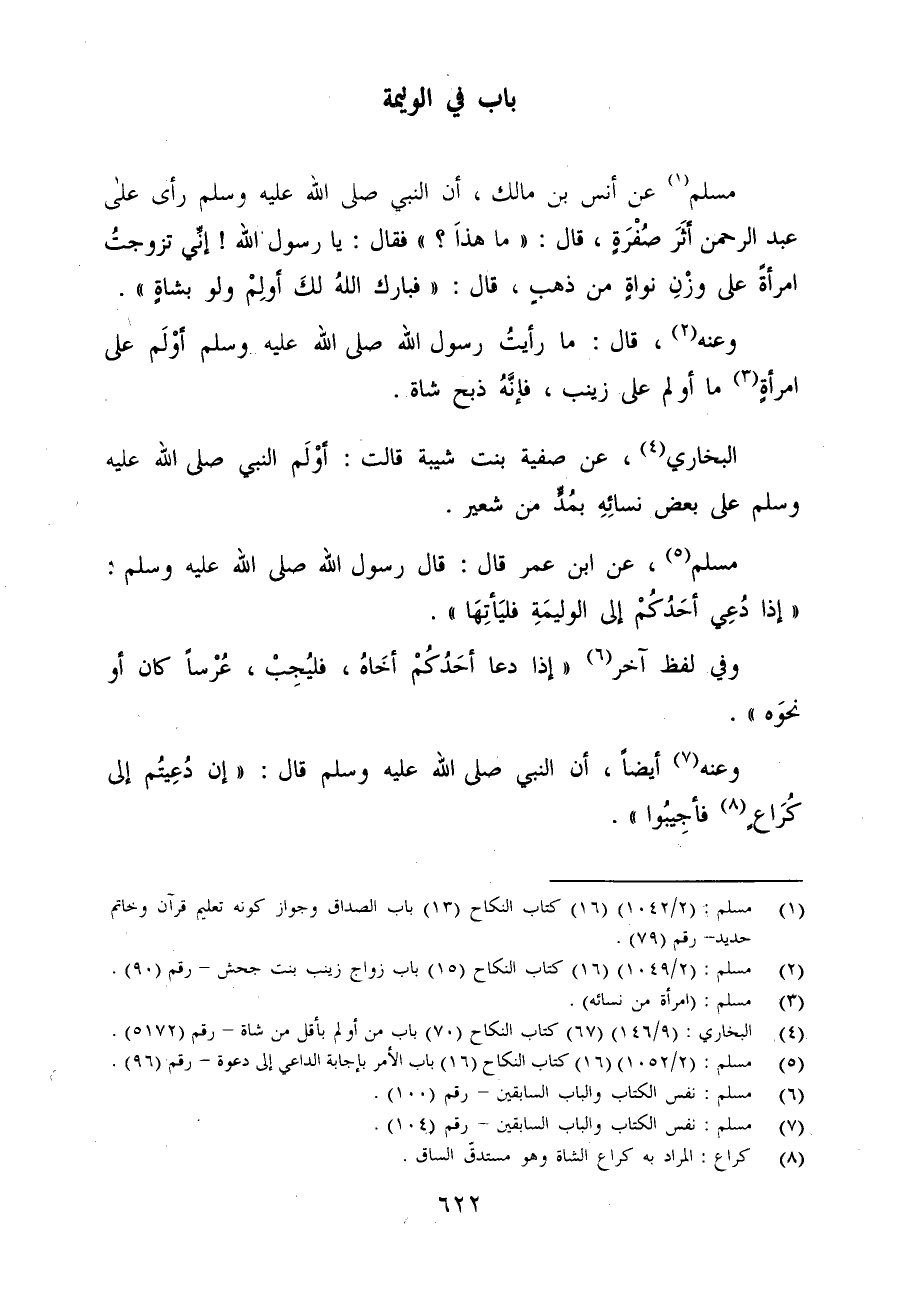 باب في الوليمة
مسلم(١) عن أنس بن مالك ، أن النبي صلى الله عليه وسلم رأى علىٰ
عبد الرحمن أَثَرَ صُفْرَةٍ ، قال : « ما هذَا ؟ » فقال : يا رسول الله ! إنِّي تزوجتُ
امرأةً على وزْنِ نواةٍ من ذهبٍ ، قال : « فبارك اللهُ لكَ أولِمْ ولو بشاةٍ » .
وعنه(٢) ، قال : ما رأيتُ رسول الله صلى الله عليه وسلم أوْلَم على
امرأةٍ(٣) ما أولم على زينب ، فإنَّهُ ذبح شاة .
البخاري(٤) ، عن صفية بنت شيبة قالت : أوْلَم النبي صلى الله عليه
وسلم على بعض نسائِهِ بمُدٍّ من شعير .
مسلم(٥) ، عن ابن عمر قال : قال رسول الله صلى الله عليه وسلم :
« إذا دُعِي أحَدُكُمْ إلى الوليمَةِ فليَأتِهَا » .
وفي لفظ آخر(٦) « إذا دعا أحَدُكُمْ أخَاهُ ، فليُجِبْ ، عُرْساً كان أو
نحوَه » .
وعنه(٧) أيضاً ، أن النبي صلى الله عليه وسلم قال : « إن دُعِيتُم إلى
كُرَاعٍ(٨) فأجِيبُوا » .
(١) مسلم : (١٠٤٢/٢) (١٦) كتاب النكاح (١٣) باب الصداق وجواز كونه تعليم قرآن وخاتم
حديد- رقم (٧٩) .
(٢) مسلم : (١٠٤٩/٢) (١٦) كتاب النكاح (١٥) باب زواج زينب بنت جحش - رقم (٩٠) .
(٣) مسلم : (امرأة من نسائه) .
(٤) البخاري : (١٤٦/٩) (٦٧) كتاب النكاح (٧٠) باب من أولم بأقل من شاة - رقم (٥١٧٢) .
(٥) مسلم : (١٠٥٢/٢) (١٦) كتاب النكاح (١٦) باب الأمر بإجابة الداعي إلى دعوة - رقم (٩٦) .
(٦) مسلم : نفس الكتاب والباب السابقين - رقم (١٠٠) .
(٧) مسلم : نفس الكتاب والباب السابقين - رقم (١٠٤) .
(٨) كراع : المراد به كراع الشاة وهو مستدقّ الساق .
٦٢٢